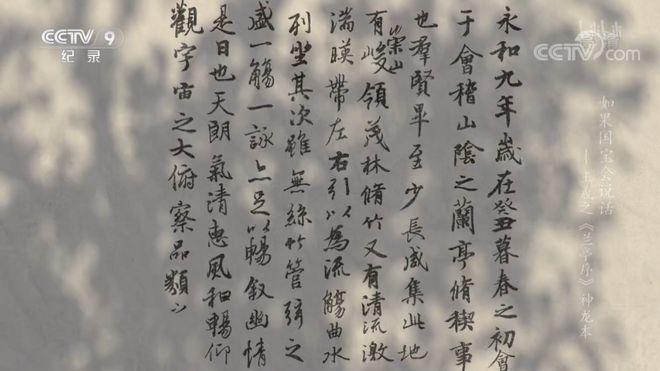 CCTV 9
纪录
CCTV.com
如果国宝会说话
——王羲之《兰亭序》神龙本
永和九年歲在癸丑暮春之初會
于會稽山陰之蘭亭脩稧事
也羣賢畢至少長咸集此地
有崇山峻領茂林脩竹又有清流激
湍暎帶左右引以為流觴曲水
列坐其次雖無絲竹管弦之
盛一觴一詠亦足以暢叙幽情
是日也天朗氣清惠風和暢仰
觀宇宙之大俯察品類之